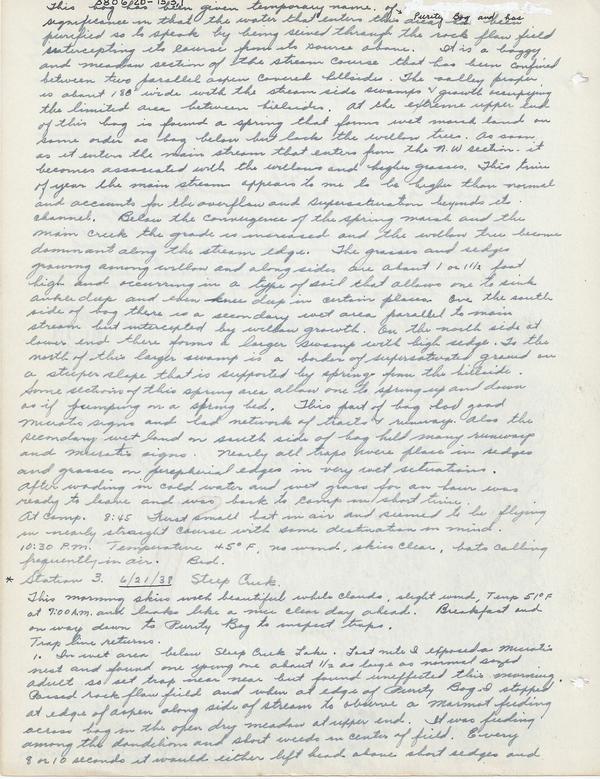 5806/20-13/3
This bog has been given temporary name. of. Purity Bog and has
significance in that the water that enters this
purified so to speak by being seived through the rock flow field
intercepting its course from its source above. It is a boggy
and meadow section of the stream course that has been confined
between two parallel aspen covered hillsides. The valley proper
is about 180' wide with the stream side swamps & growth occupying
the limited area between hillsides. At the extreme upper end
of this bog is found a spring that forms wet marsh land on
same order as bog below but lack the willow trees. As soon
as it enters the main stream that enters from the N.W section. it
becomes associated with the willows and higher grasses. This time
of year the main stream appears to me to be higher than normal
and accounts for the overflow and supersaturation beyonds its
channel. Below the convergence of the spring marsh and the
main creek the grade is increased and the willow tree become
dominant along the stream edge. The grasses and sedges
growing among willow and along sides are about 1 or 1 1/2 foot
high and occurring in a type of soil that allows one to sink
ankle deep and even knee deep in certain places. On the south
side of bog there is a secondary wet area parallel to main
stream but intercepted by willow growth. On the north side at
lower end there forms a larger swamp with high sedge. To the
north of this larger swamp is a border of supersaturated ground on
a steeper slope that is supported by springs from the hillside.
Some sections of this spring area allow one to spring up and down
as if jumping on a spring bed. This part of bog had good
microtis signs and had network of tracts & runways. Also the
secondary wet land on south side of bog held many runways
and microtis signs. Nearly all traps were place in sedges
and grasses on peripherial edges in very wet situations.
After wading in cold water and wet grass for an hour was
ready to leave and was back to camp in short time.
At camp. 8:45 First small bat in air and seemed to be flying
in nearly straight course with some destination in mind.
10:30 P.M. Temperature 45° F, no wind, skies clear, bats calling
frequently in air. Bed.
* Station 3. 6/21/38 Steep Creek.
This morning skies with beautiful white clouds, slight wind, Temp 51° F
at 7:00 A.M. and looks like a nice clear day ahead. Breakfast and
on way down to Purity Bog to inspect traps.
Trap line returns.
1. In wet area below Steep Creek Lake. Last nite I exposed a Microtis
nest and found one young one about 1/2 as large as normal sized
adult so set trap near near but found uneffected this morning.
Passed rock flow field and when at edge of Purity Bog I stopped
at edge of aspen along side of stream to observe a Marmot feeding
across bog in the open dry meadow at upper end. It was feeding
among the dandelion and short weeds in center of field. Every
8 or 10 seconds it would either left head above short sedges and